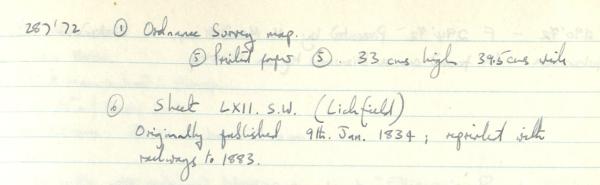 287'72 ① Ordnance Survey map.
⑤ Printed paper ⑤. 33 cms high 39.5 cms wide
⑥ Sheet LXII. S.W. (Lichfield)
Originally published 9th. Jan. 1834; reprint with
railways to 1883.